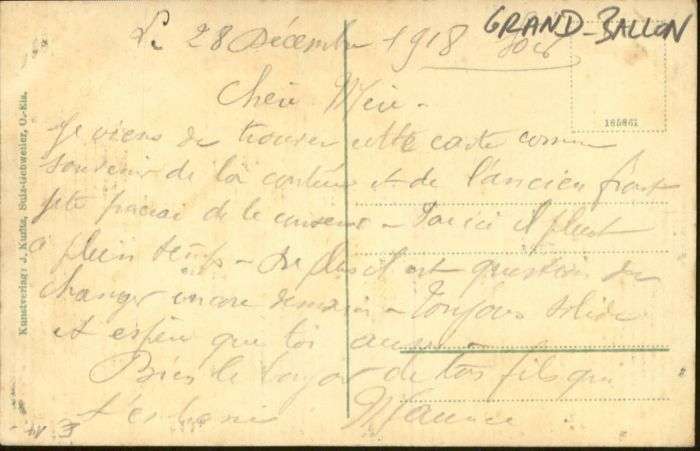 GRAND-BALLON
Le 28 Décembre 1918 soir
185867
Chère Mère -
Je viens de trouver cette carte comme
souvenir de la contrée et de l'ancien front
je te prierai de le conserver - Par ici il pleut
à plein temps - De plus il est question de
changer encore demain - Toujours solide
et espère que toi aussi -
Bien le bonjour de ton fils qui
t'embrasse Maurice
Kunstverlag: J. Kuntz, Sulz-Gebweiler, O.-Els.